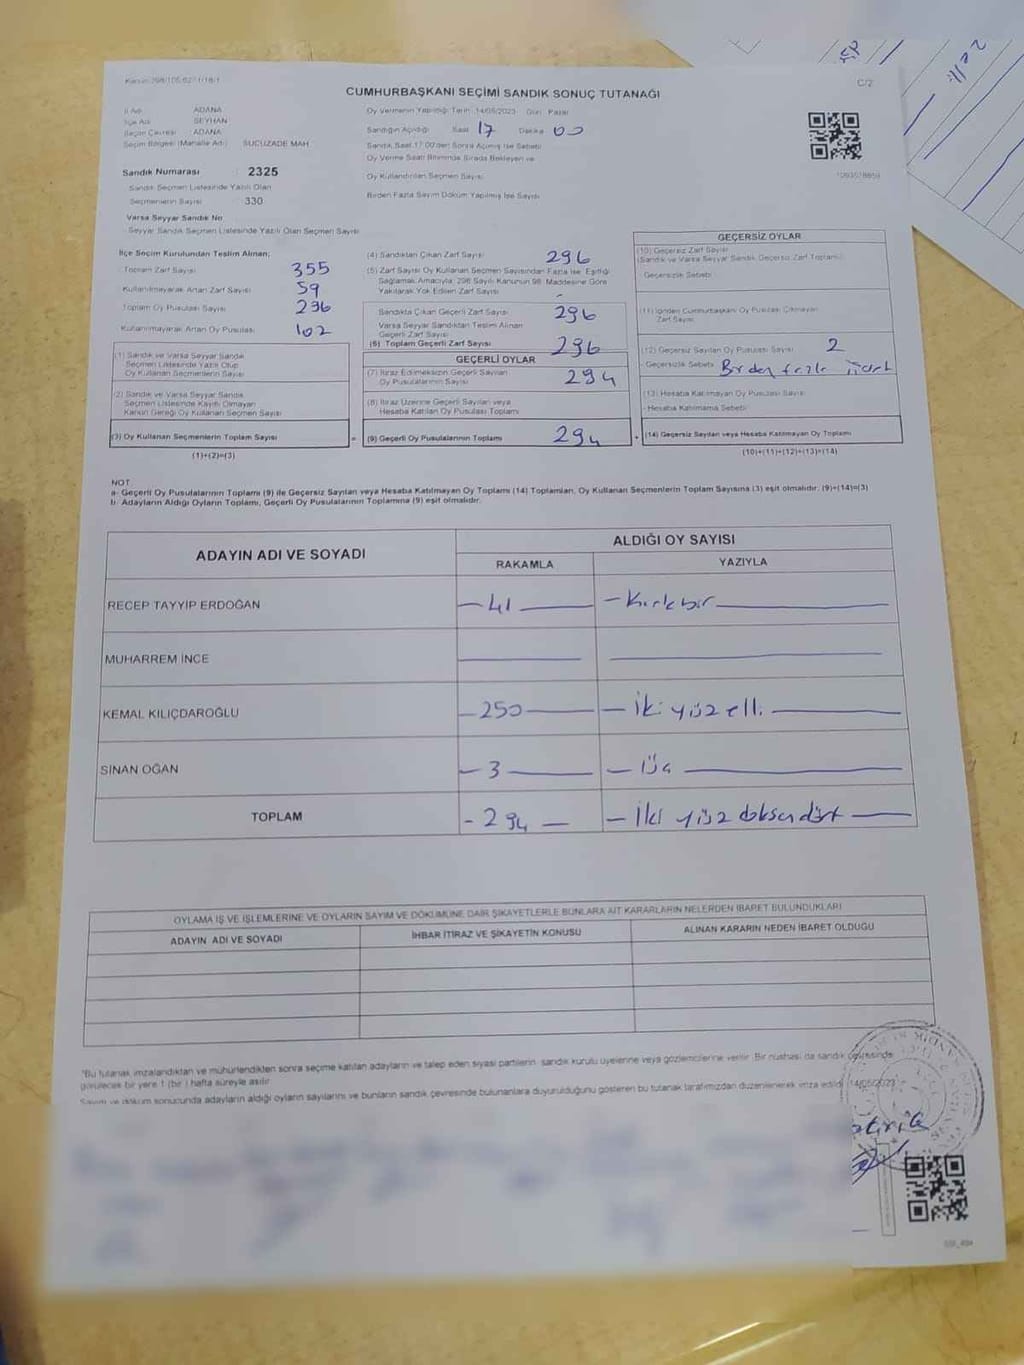 CUMHURBAŞKANI SEÇİMİ SANDIK SONUÇ TUTANAĞI
C/2
İl Adı ADANA
İlçe Adı SEYHAN
Seçim Çevresi ADANA
Seçim Bölgesi (Mahalle Adı) SUCUZADE MAH.
Oy Vermenin Yapıldığı Tarih 14/05/2023 Gün Pazar
Sandığın Açıldığı Saat 17 Dakika 00
Sandık Saat 17.00'den Sonra Açılmış İse Sebebi
Oy Verme Saati Bitiminde Sırada Bekleyen ve
Oy Kullandırılan Seçmen Sayısı
Birden Fazla Sayım Döküm Yapılmış İse Sayısı
Sandık Numarası : 2325
Sandık Seçmen Listesinde Yazılı Olan
Seçmenlerin Sayısı : 330
Varsa Seyyar Sandık No
Seyyar Sandık Seçmen Listesinde Yazılı Olan Seçmen Sayısı
İlçe Seçim Kurulundan Teslim Alınan;
Toplam Zarf Sayısı 355
Kullanılmayarak Artan Zarf Sayısı 59
Toplam Oy Pusulası Sayısı
Kullanılmayarak Artan Oy Pusulası 102
(1) Sandık ve Varsa Seyyar Sandık
Seçmen Listesinde Yazılı Olup
Oy Kullanan Seçmenlerin Sayısı
(2) Sandık ve Varsa Seyyar Sandık
Seçmen Listesinde Kayıtlı Olmayan
Kanun Gereği Oy Kullanan Seçmen Sayısı
(3) Oy Kullanan Seçmenlerin Toplam Sayısı
(1)+(2)=(3)
(4) Sandıktan Çıkan Zarf Sayısı 296
(5) Zarf Sayısı Oy Kullanan Seçmen Sayısından Fazla İse, Eşitliği
Sağlamak Amacıyla; 298 Sayılı Kanunun 98. Maddesine Göre
Yakılarak Yok Edilen Zarf Sayısı -
Sandıkta Çıkan Geçerli Zarf Sayısı 296
Varsa Seyyar Sandıktan Teslim Alınan
Geçerli Zarf Sayısı
(6) Toplam Geçerli Zarf Sayısı 296
GEÇERLİ OYLAR
(7) İtiraz Edilmeksizin Geçerli Sayılan
Oy Pusulalarının Sayısı 294
(8) İtiraz Üzerine Geçerli Sayılan veya
Hesaba Katılan Oy Pusulası Toplamı
= (9) Geçerli Oy Pusulalarının Toplamı 294
GEÇERSİZ OYLAR
(10) Geçersiz Zarf Sayısı
(Sandık ve Varsa Seyyar Sandık Geçersiz Zarf Toplamı)
- Geçersizlik Sebebi
(11) İçinden Cumhurbaşkanı Oy Pusulası Çıkmayan
Zarf Sayısı
(12) Geçersiz Sayılan Oy Pusulası Sayısı 2
- Geçersizlik Sebebi Birden fazla
(13) Hesaba Katılmayan Oy Pusulası Sayısı
- Hesaba Katılmama Sebebi
+ (14) Geçersiz Sayılan veya Hesaba Katılmayan Oy Toplamı
(10)+(11)+(12)+(13)=(14)
NOT
a- Geçerli Oy Pusulalarının Toplamı (9) ile Geçersiz Sayılan veya Hesaba Katılmayan Oy Toplamı (14) Toplamları, Oy Kullanan Seçmenlerin Toplam Sayısına (3) eşit olmalıdır. (9)+(14)=(3)
b- Adayların Aldığı Oyların Toplamı, Geçerli Oy Pusulalarının Toplamına (9) eşit olmalıdır.
ADAYIN ADI VE SOYADI
ALDIĞI OY SAYISI
RAKAMLA YAZIYLA
RECEP TAYYİP ERDOĞAN - 41 - Kırkbir
MUHARREM İNCE
KEMAL KILIÇDAROĞLU - 250 - İki yüz elli
SİNAN OĞAN - 3 - Üç
TOPLAM - 294 - İki yüz doksan dört
OYLAMA İŞ VE İŞLEMLERİNE VE OYLARIN SAYIM VE DÖKÜMÜNE DAİR ŞİKAYETLERLE BUNLARA AİT KARARLARIN NELERDEN İBARET BULUNDUKLARI
ADAYIN ADI VE SOYADI
İHBAR İTİRAZ VE ŞİKAYETİN KONUSU
ALINAN KARARIN NEDEN İBARET OLDUĞU
*Bu tutanak imzalandıktan ve mühürlendikten sonra seçime katılan adayların ve talep eden siyasi partilerin sandık kurulu üyelerine veya gözlemcilerine verilir. Bir nüshası da sandık çevresinde
görülecek bir yere 1 (bir) hafta süreyle asılır.
Sayım ve döküm sonucunda adayların aldığı oyların sayılarını ve bunların sandık çevresinde bulunanlara duyurulduğunu gösteren bu tutanak tarafımızdan düzenlenerek imza edildi. 14/05/2023